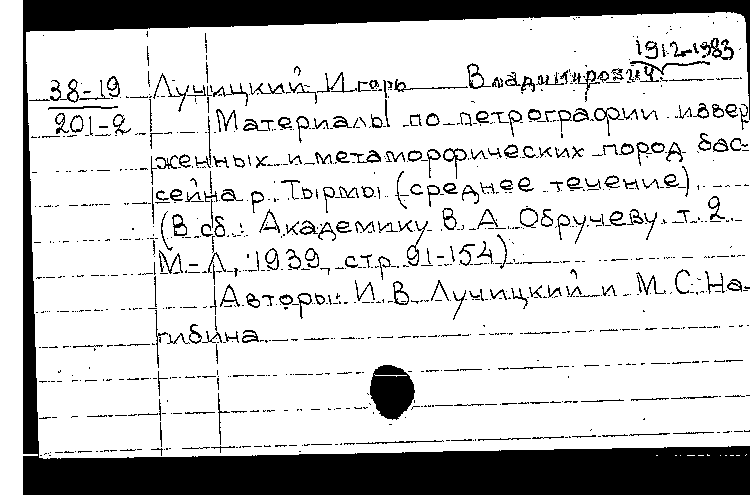 1912-1983
38-19 Лучицкий, Игорь Владимирович.
201-2 Материалы по петрографии извер
женных и метаморфических пород бас-
сейна р. Тырмы (среднее течение).
(В сб.: Академику В. А. Обручеву. т. 2
М-Л, 1939, стр. 91-154)
Авторы: И. В. Лучицкий и М. С. На-
гибина.